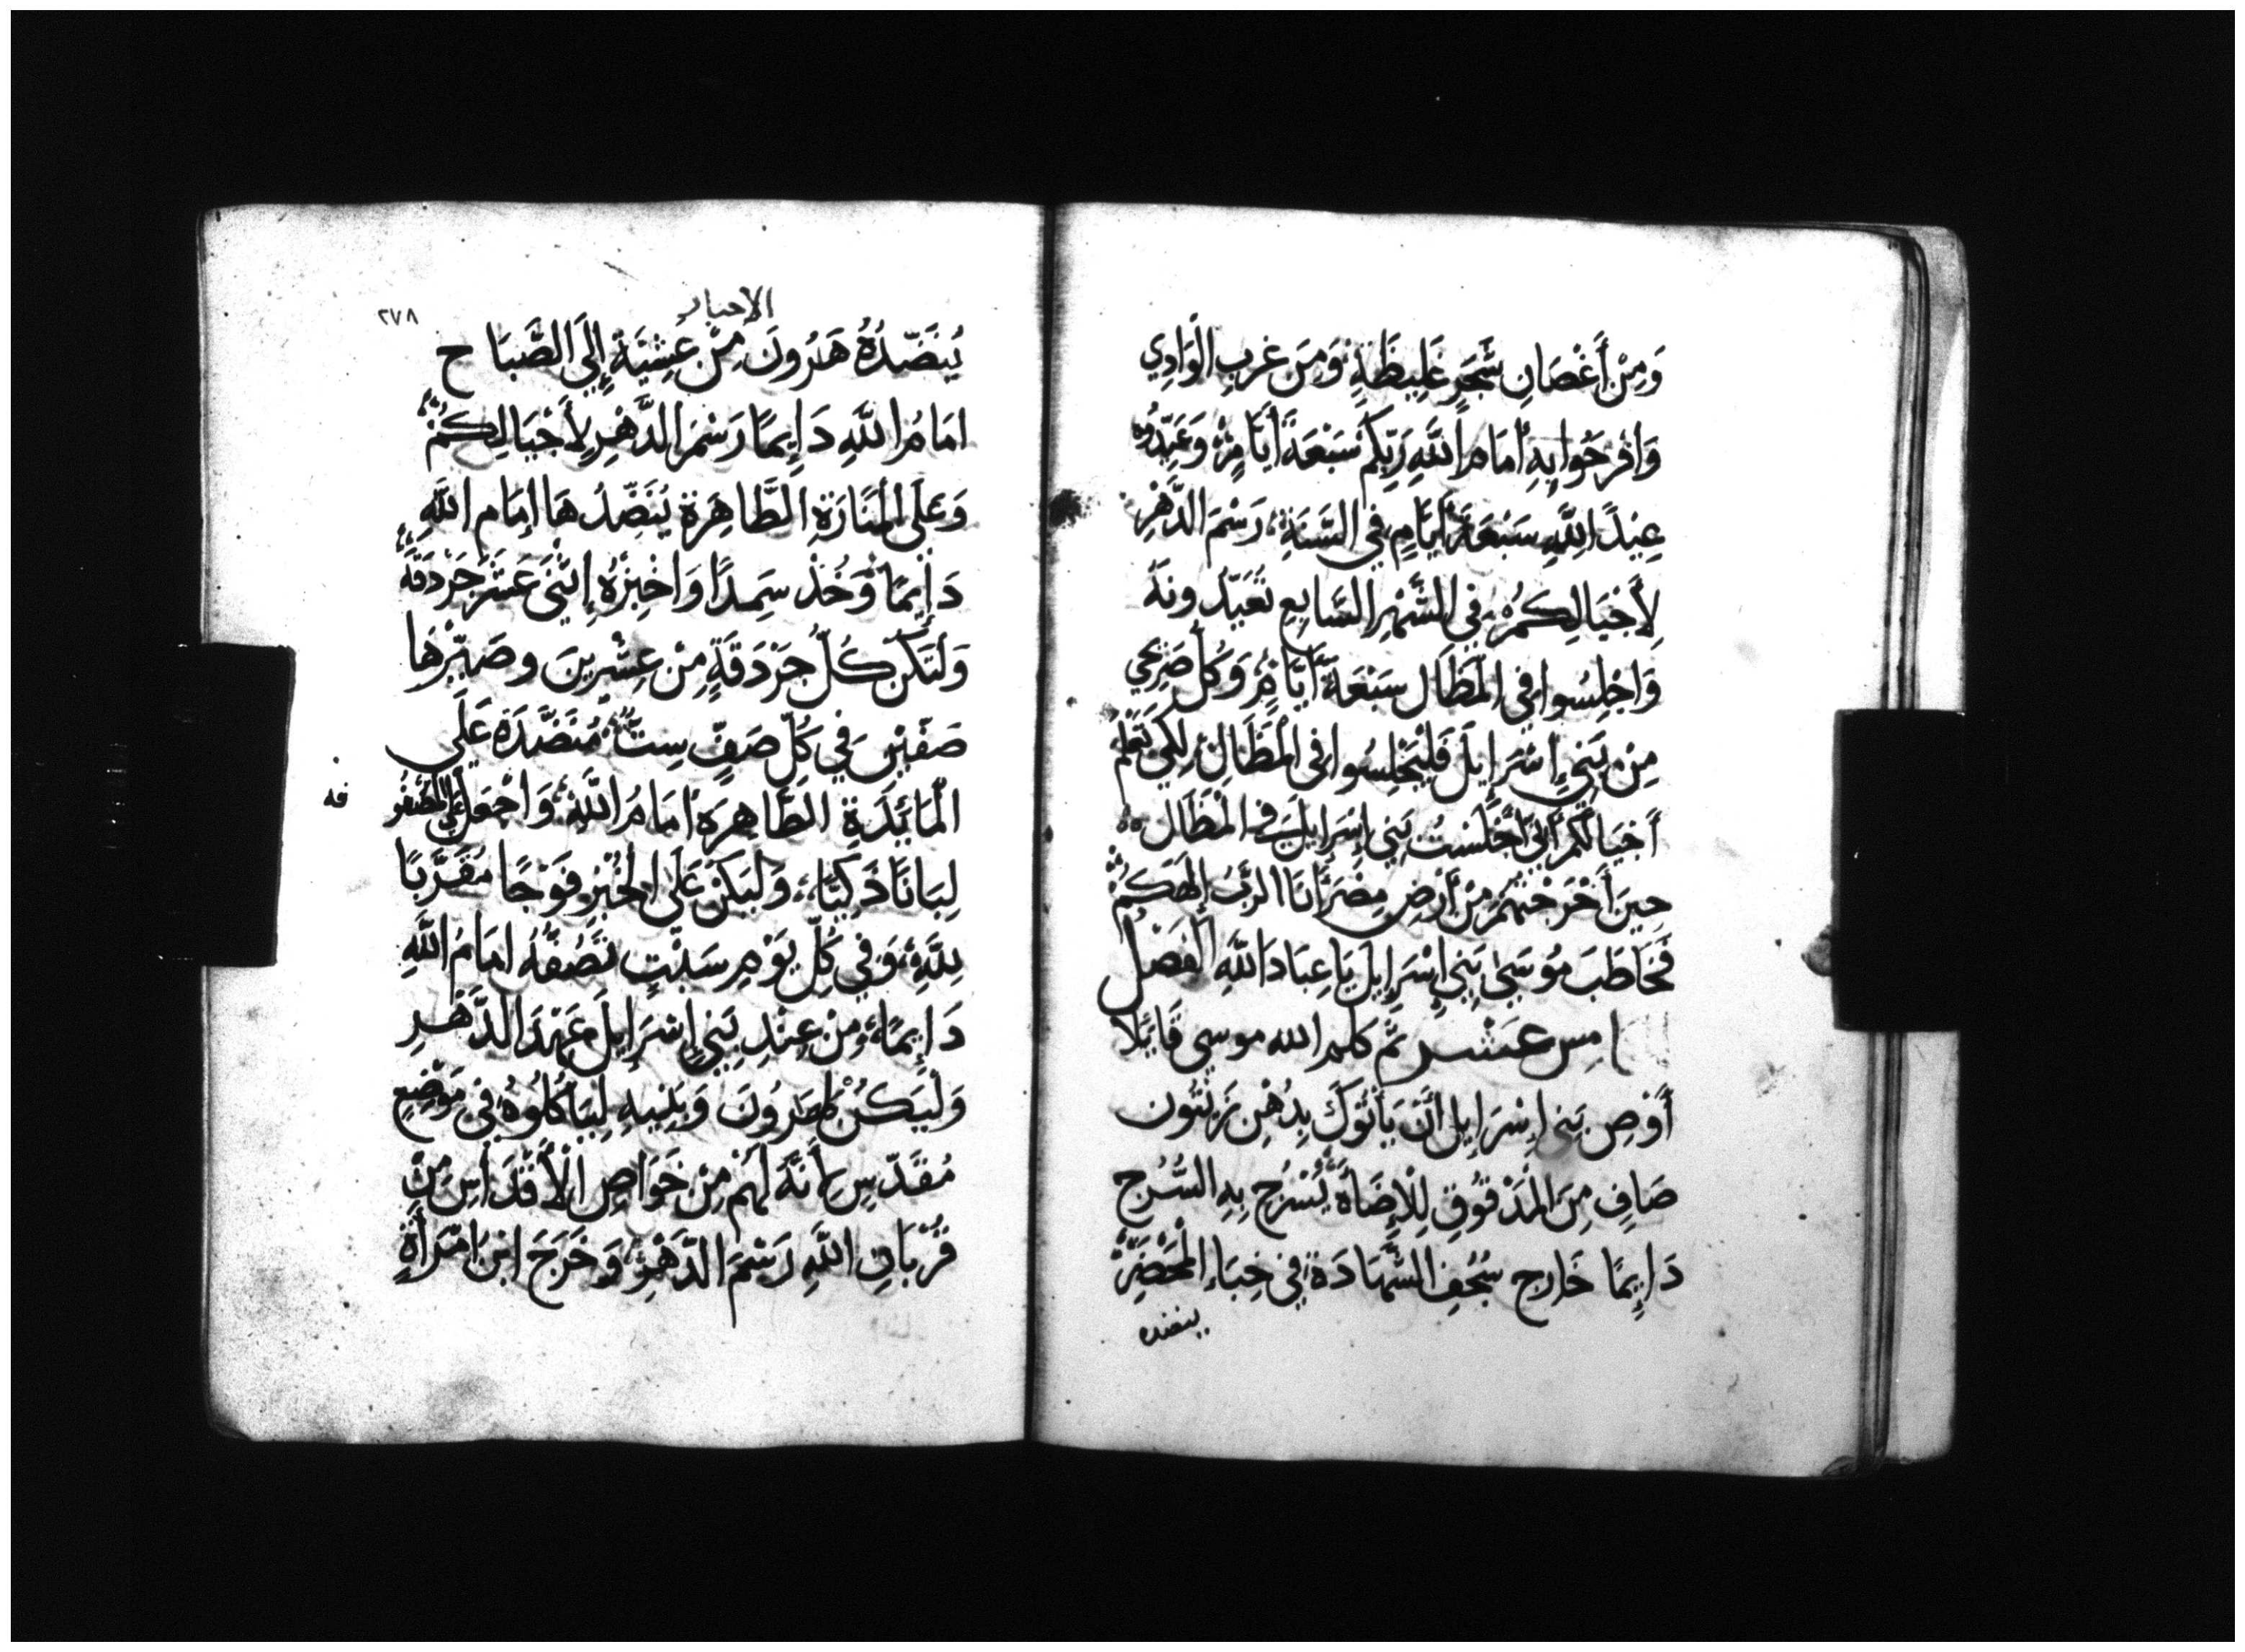 وَمِنْ أَغْصَانِ شَجَرٍ غَلِيظَةٍ وَمِنَ غَرَبِ الْوَادِي
وَافْرَحُوا بِهِ أَمَامَ اللَّهِ رَبِّكُم سَبْعَةَ أَيَّامٍ وَعَيِّدُوهُ
عِيْدًا لِلَّهِ سَبْعَةَ أَيَّامٍ فِي السَّنَةِ رَسْمَ الدَّهْرِ
لِأَجْيَالِكُمْ فِي الشَّهْرِ السَّابِعِ تُعَيِّدُونَهُ
وَاجْلِسُوا فِي الْمَظَالِ سَبْعَةَ أَيَّامٍ وَكُلُّ صَرِيحِي
مِنْ بَنِي إِسْرَايِلَ فَلْيَجْلِسُوا فِي الْمَظَالِ لِكَيْ تَعْلَمُ
أَجْيَالُكُم أَنِّي أَجْلَسْتُ بَنِي إِسْرَايِلَ فِي الْمَظَالِ
حِينَ أَخْرَجْتُهُمْ مِنْ أَرْضِ مِصْرَ أَنَا الرَّبُّ إِلَهُكُمْ
فَخَاطَبَ مُوسَى بَنِي إِسْرَايِلَ يَا عِبَادَ اللَّهِ الْفَصْل
امس عشر ثم كلم الله موسى قايلا
أَوْصِ بَنِي إِسْرَايِلَ أَنْ يَأْتُوكَ بِدُهْنِ زَيْتُون
صَافٍ مِنَ الْمَدْقُوقِ لِلْإِضَاءَةِ يُسْرَجُ بِهِ السُّرُج
دَايِمًا خَارِج سُجُفِ الشَّهَادَةِ فِي خِبَاءِ الْمَحْضَرِ
ينضده
الاحبار
٢٧٨
يُنَضِّدُهُ هَرُونَ مِنْ عَشِيَّةٍ إِلَى الصَّبَاح
امَامَ اللَّهِ دَايِمًا رَسْمَ الدَّهْرِ لِأَجْيَالِكُمْ
وَعَلَى الْمَنَارَةِ الطَّاهِرَةِ يُنَضِّدُهَا امَام اللَّهِ
دَايِمًا وَخُذْ سَمِدًا وَاخْبِزْهُ إِثْنَيْ عَشَرَ جَرْدَقَةً
وَلْتَكُنْ كُلُّ جَرْدَقَةٍ مِنْ عِشْرِينَ وَصَيِّرْهَا
صَفَّيْنِ فِي كُلِّ صَفٍّ سِتَّ مُنَضَّدَةَ عَلَى
الْمَائِدَةِ الطَّاهِرَةِ امَامَ اللَّهِ وَاجْعَلْ عَلَى الْمَصْفُو
فه
لِبَانًا ذَكِيًّا وَلْيَكُنْ عَلَى الْخُبْزِ فَوْجًا مُقَرَّبًا
لِلَّهِ وَفِي كُلِّ يَوْمِ سَبْتٍ تَصُفُّهُ امَامَ اللَّهِ
دَايِمًا مِنْ عِنْدِ بَنِي إِسْرَايِلَ عَهْدَ الدَّهْرِ
وَلْيَكُنْ لِهَرُونَ وَبَنِيهِ لِيَأْكُلُوهُ فِي مَوْضِعٍ
مُقَدَّسٍ لِأَنَّهُ لَهُم مِنْ خَوَاصِ الْأَقْدَاسِ مِنْ
قُرْبَانِ اللَّهِ رَسْمَ الدَّهْرِ وَخَرَجَ ابْنَ امْرَأَةٍ